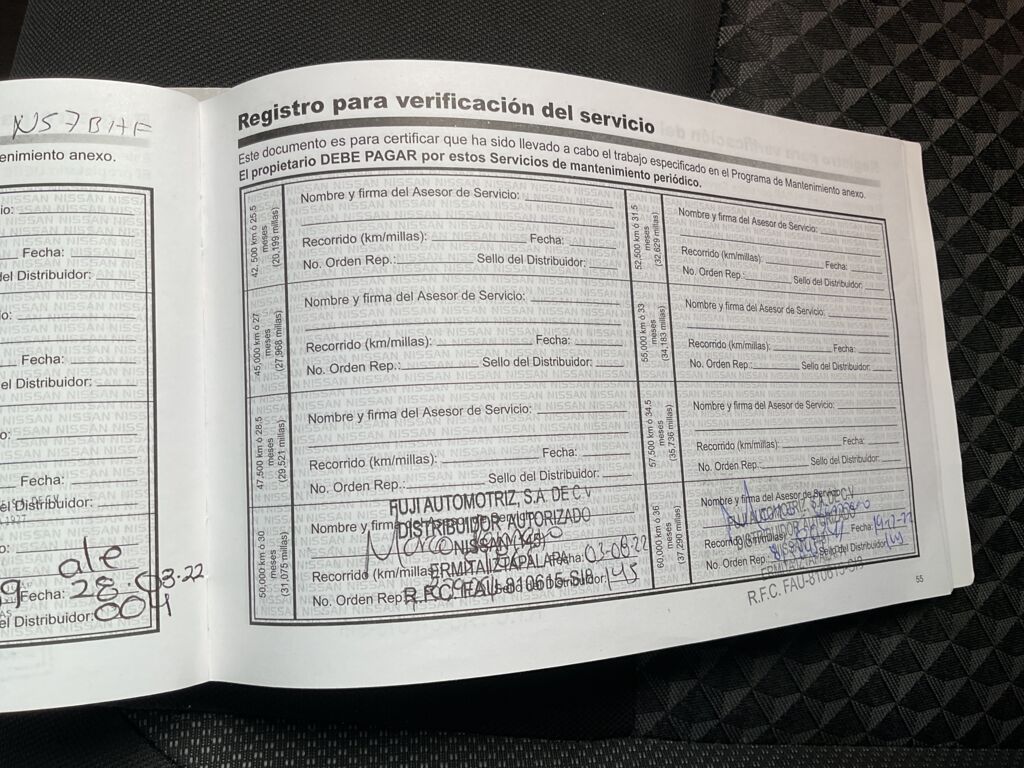 NS7BHF
enimiento anexo.
io:
Fecha:
del Distribuidor:
o:
Fecha:
el Distribuidor:
o:
Fecha:
del Distribuidor:
o:
ale
Fecha: 28-03-22
el Distribuidor: 004
Registro para verificación del servicio
Este documento es para certificar que ha sido llevado a cabo el trabajo especificado en el Programa de Mantenimiento anexo.
El propietario DEBE PAGAR por estos Servicios de mantenimiento periódico.
42, 500 km ó 25.5
meses
Nombre y firma del Asesor de Servicio:
Recorrido (km/millas): Fecha:
No. Orden Rep.: Sello del Distribuidor:
45,000 km ó 27
meses
(27,968 millas)
Nombre y firma del Asesor de Servicio:
Recorrido (km/millas): Fecha:
No. Orden Rep.: Sello del Distribuidor:
47,500 km ó 28.5
meses
(29,521 millas)
Nombre y firma del Asesor de Servicio:
Recorrido (km/millas): Fecha:
No. Orden Rep.: Sello del Distribuidor:
50,000 km ó 30
meses
(31,075 millas)
FUJI AUTOMOTRIZ, S.A. DE C.V.
Nombre y firma
DISTRIBUIDOR AUTORIZADO
NISSAN
Recorrido (km/millas) ERMITA IZTAPALAPA 03-08-22
No. Orden Rep R.F.C. FAU-810615-SJ6 145
52,500 km ó 31.5
meses
(32,629 millas)
Nombre y firma del Asesor de Servicio:
Recorrido (km/millas): Fecha:
No. Orden Rep.: Sello del Distribuidor:
55,000 km ó 33
meses
(34,183 millas)
Nombre y firma del Asesor de Servicio:
Recorrido (km/millas): Fecha:
No. Orden Rep.: Sello del Distribuidor:
57,500 km ó 34.5
meses
(35,736 millas)
Nombre y firma del Asesor de Servicio:
Recorrido (km/millas): Fecha:
No. Orden Rep.: Sello del Distribuidor:
60,000 km ó 36
meses
(37,290 millas)
Nombre y firma del Asesor de Servicio
Recorrido (km/millas) Fecha: 14-12-22
No. Orden Rep. Sello del Distribuidor:
R.F.C. FAU-810615-SJ6
55